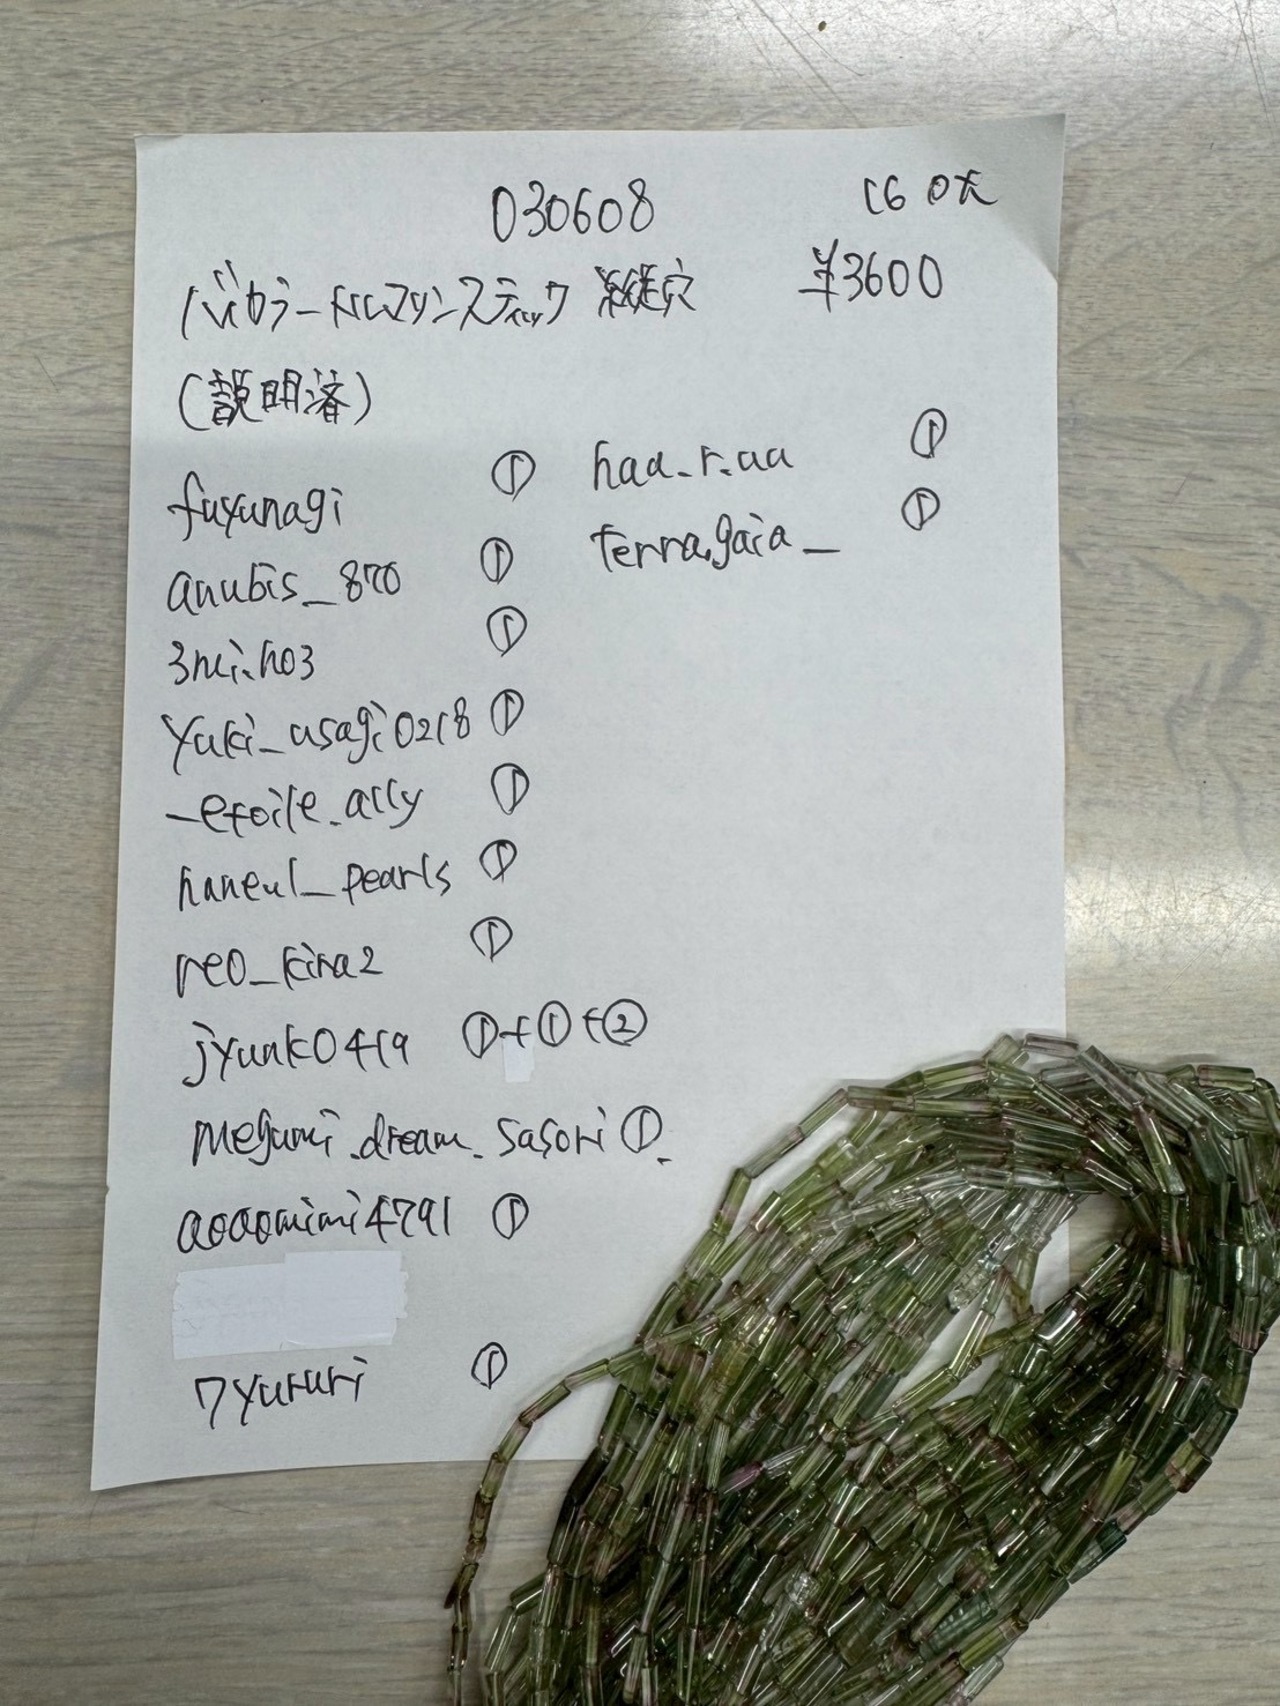 030608
160点
バイカラートルマリンスティック 縦穴 ¥3600
(説明済)
fuyunagi ①
anubis_870 ①
3mi.ho3 ①
yuki_usagi0218 ①
_etoile.ally ①
haneul_pearls ①
neo_kina2 ①
jyunk0419 ①+①+②
megumi.dream.sasori ①.
aoaomimi4791 ①
7yururi ①
haa_r.aa ①
terra.gaia_ ①